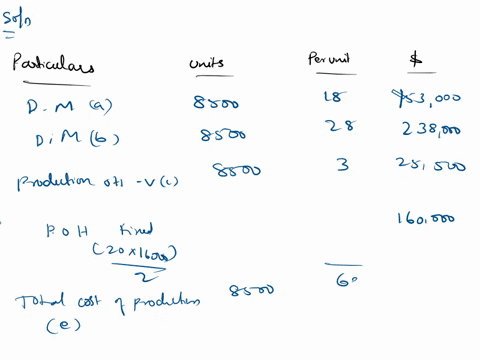 Soln
Particulars units Per unit $
D.M (a) 8500 18 153,000
D.M (b) 8500 28 238,000
Production OH -V(c) 8500 3 251,500
P.O.H Fixed 160,000
(20x16000)
2
Total cost of production 8500 60
(e)